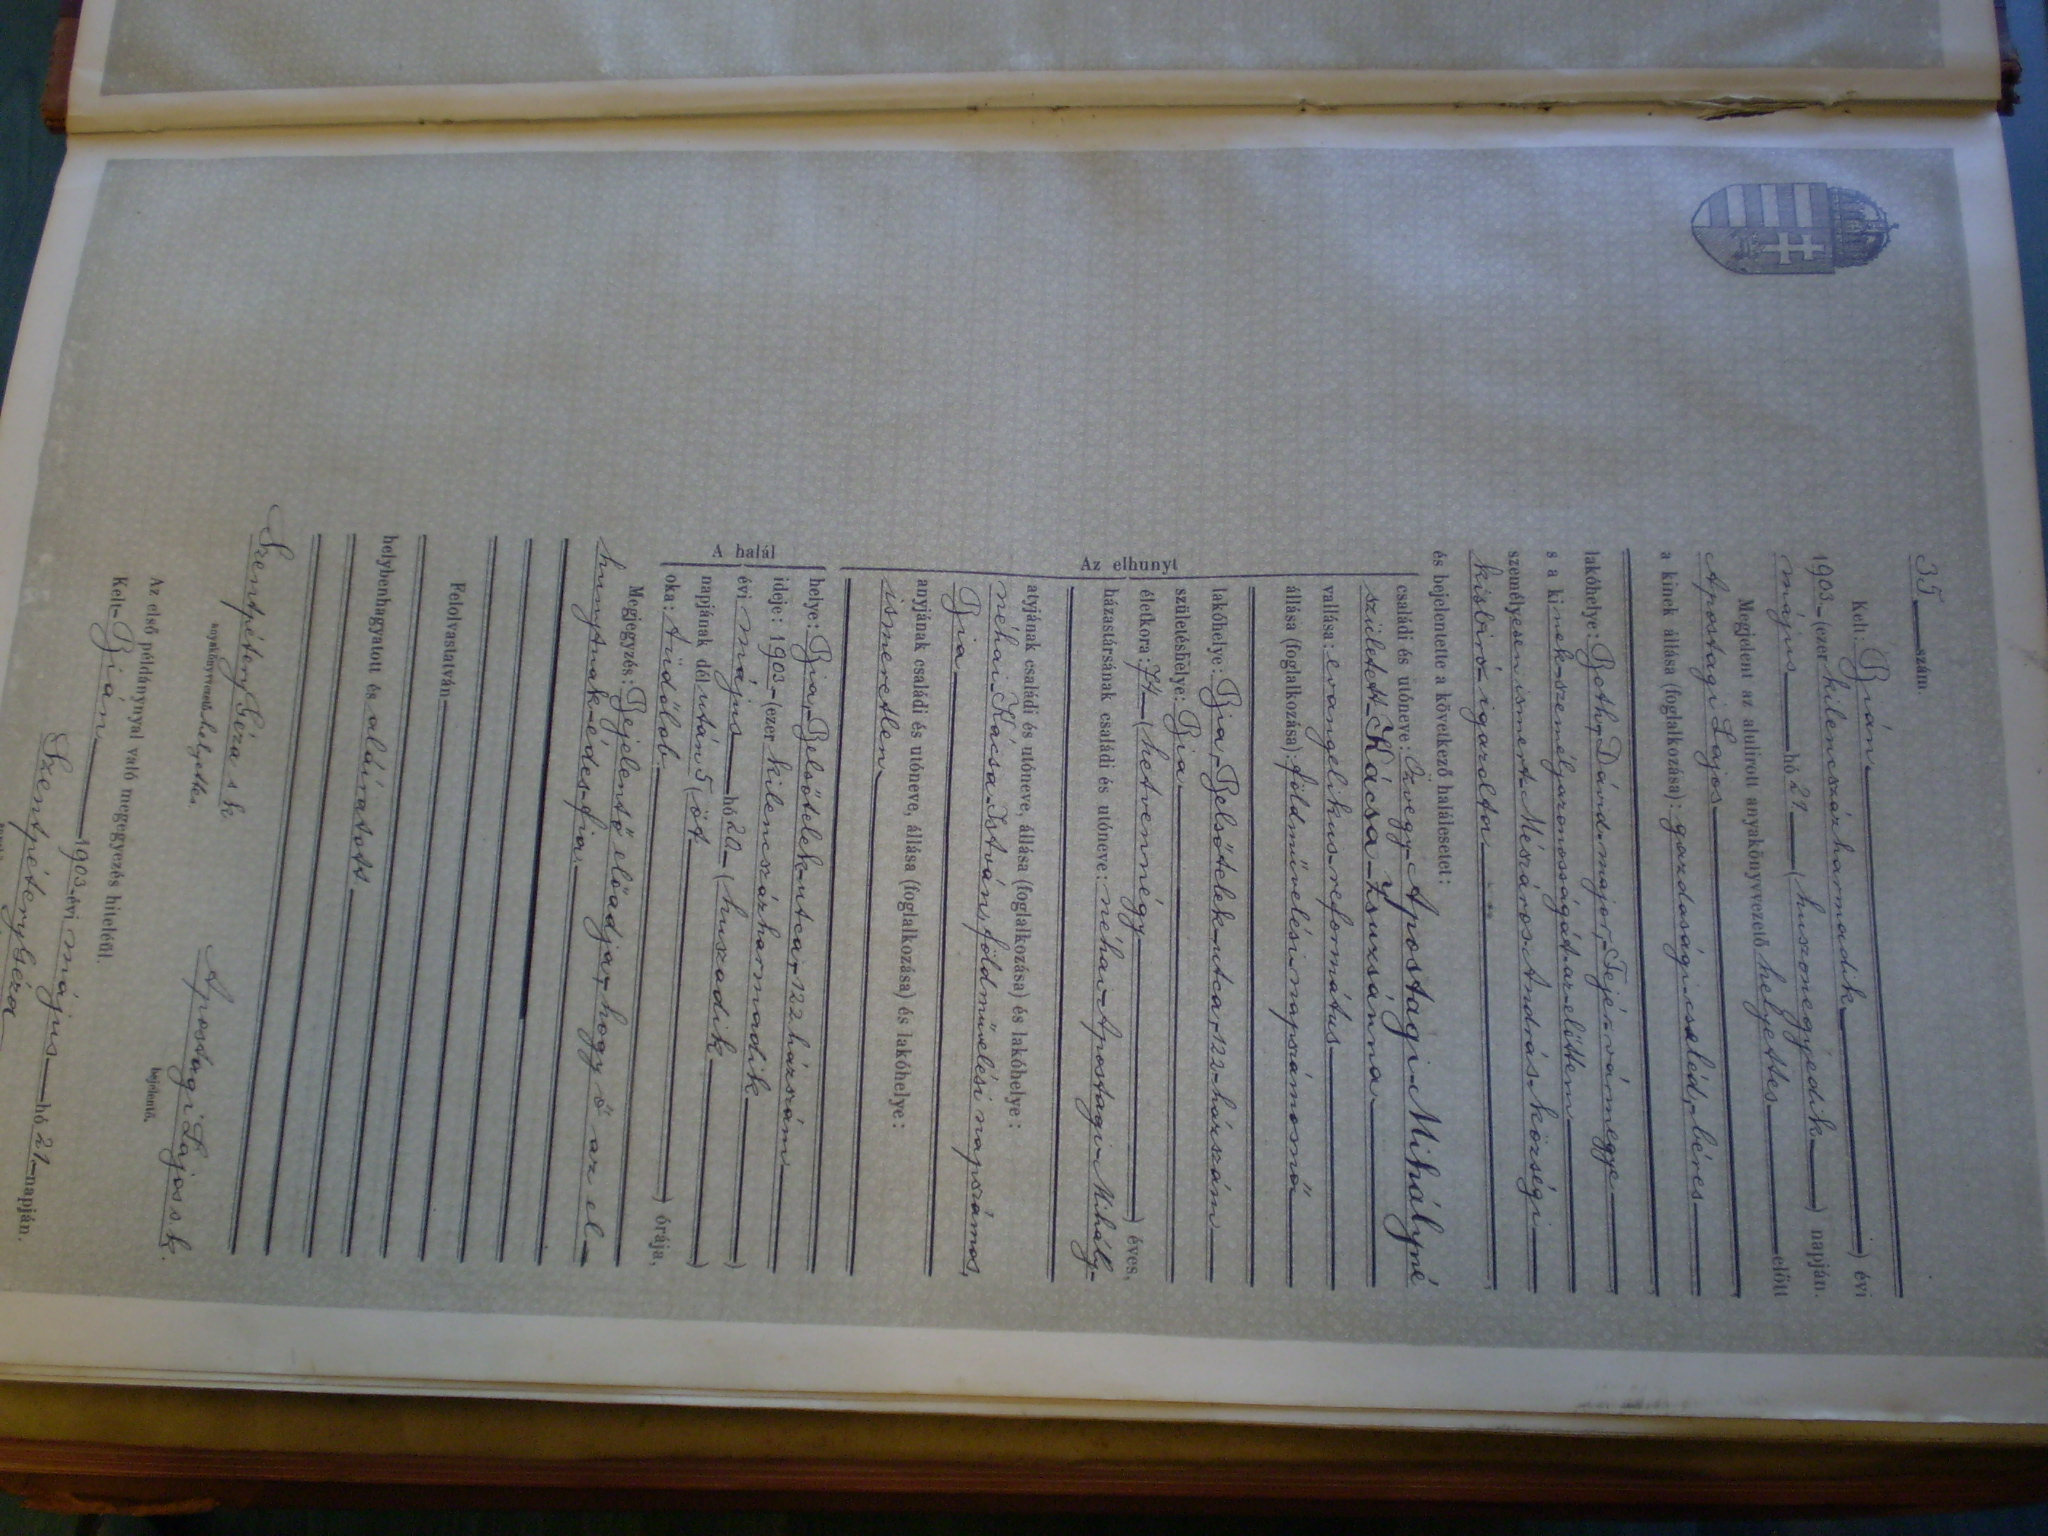 35 szám.
Kelt: Bián
1903 (ezer kilencszázharmadik) évi
május hó 21 (huszonegyedik) napján.
Megjelent az alulirott anyakönyvvezető helyettes előtt
Apostagi Lajos
a kinek állása (foglalkozása): gazdasági cseléd, béres
lakóhelye: Bothy Dávid major, Fejér vármegye
s a kinek személyazonosságát az előttem
személyesen ismert Mészáros András községi
kisbiró igazolta
és bejelentette a következő halálesetet:
családi és utóneve: Özvegy Apostagi Mihályné
született Kácsa Zsuzsánna
vallása: evangelikus református
állása (foglalkozása): földművelési napszámosnő
lakóhelye: Bia, Belsőtelek utca, 122 házszám
születéshelye: Bia
életkora: 74 (hetvennégy) éves,
házastársának családi és utóneve: néhai Apostagi Mihály
Az elhunyt
atyjának családi és utóneve, állása (foglalkozása) és lakóhelye:
néhai Kácsa István, földművelési napszámos,
Bia
anyjának családi és utóneve, állása (foglalkozása) és lakóhelye:
ismeretlen
A halál
helye: Bia, Belsőtelek utca, 122 házszám
ideje: 1903 (ezer kilencszázharmadik
évi május hó 20 (huszadik)
napjának dél után 5 (öt) órája,
oka: Tüdőlob
Megjegyzés: Bejelentő előadja, hogy ő az el-
hunytnak édes fia.
Felolvastatván
helybenhagyatott és aláiratott
Szentpétery Géza s k
anyakönyvvezető helyettes.
Apostagi Lajos s k.
bejelentő.
Az első példánynyal való megegyezés hiteléül.
Kelt Bián 1903 évi május hó 21 napján.
Szentpétery Géza